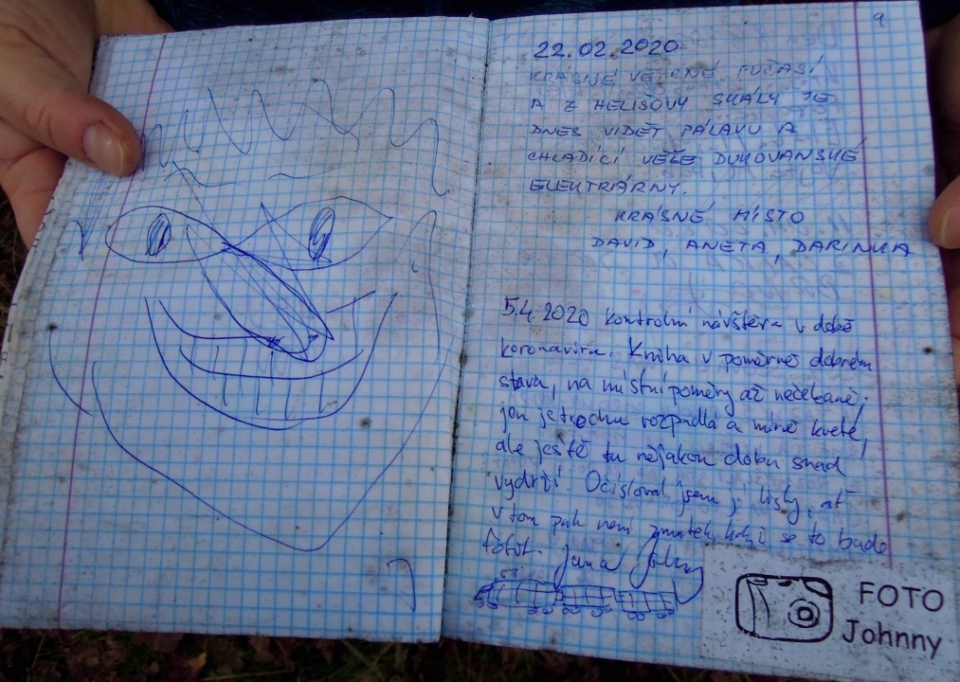 9
22.02.2020
KRÁSNÉ VĚTRNÉ POČASÍ
A Z HELIŠOVY SKÁLY JE
DNES VIDĚT PÁLAVU A
CHLADÍCÍ VĚŽE DUKOVANSKÉ
ELEKTRÁRNY.
KRÁSNÉ MÍSTO
DAVID, ANETA, DARINKA
5.4.2020 kontrolní návštěva v době
koronaviru. Kniha v poměrně dobrém
stavu, na místní poměry až nečekaně,
jen je trochu rozpadlá a mírně kvete,
ale ještě tu nějakou dobu snad
vydrží. Očísloval jsem jí listy, ať
v tom pak není zmatek, když se to bude
fotit.
7
FOTO
Johnny